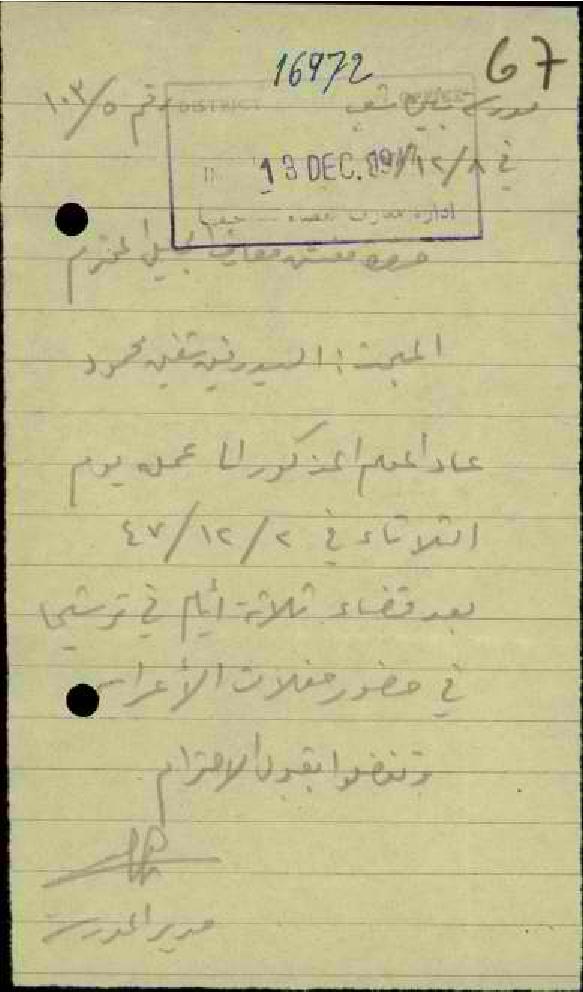 16972
67
مدرسة شعب رقم ١٠٣/٥
DISTRICT
13 DEC.
في ٨/١٢/
ادارة معارف حيفا
حضرة مفتش معارف الجليل المحترم
المبحث: السيد شفيق محمود
عاد المعلم المذكور الى عمله يوم
الثلاثاء في ٢/١٢/٤٧
بعد قضاء ثلاثة أيام في ترشيحا
في حضور حفلات الأعراس
وتفضلوا بقبول الاحترام
مدير المدرسة